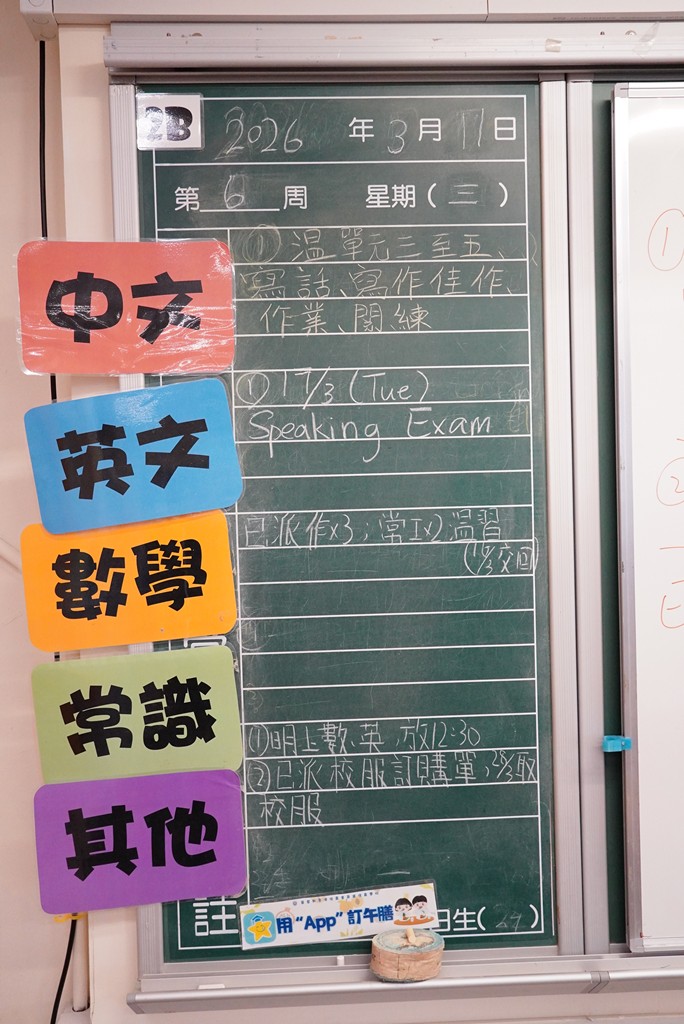 2B
2026年3月11日
第6周 星期(三)
中文
① 溫單元三至五、
寫話、寫作佳作、
作業、閱練
英文
① 17/3 (Tue)
Speaking Exam
數學
已派作x3；常Ix2溫習
交回)
常識
其他
①明上數、英,放12:30
②已派校服訂購單,
取
校服
註
用“App”訂午膳
日生( )
①
②